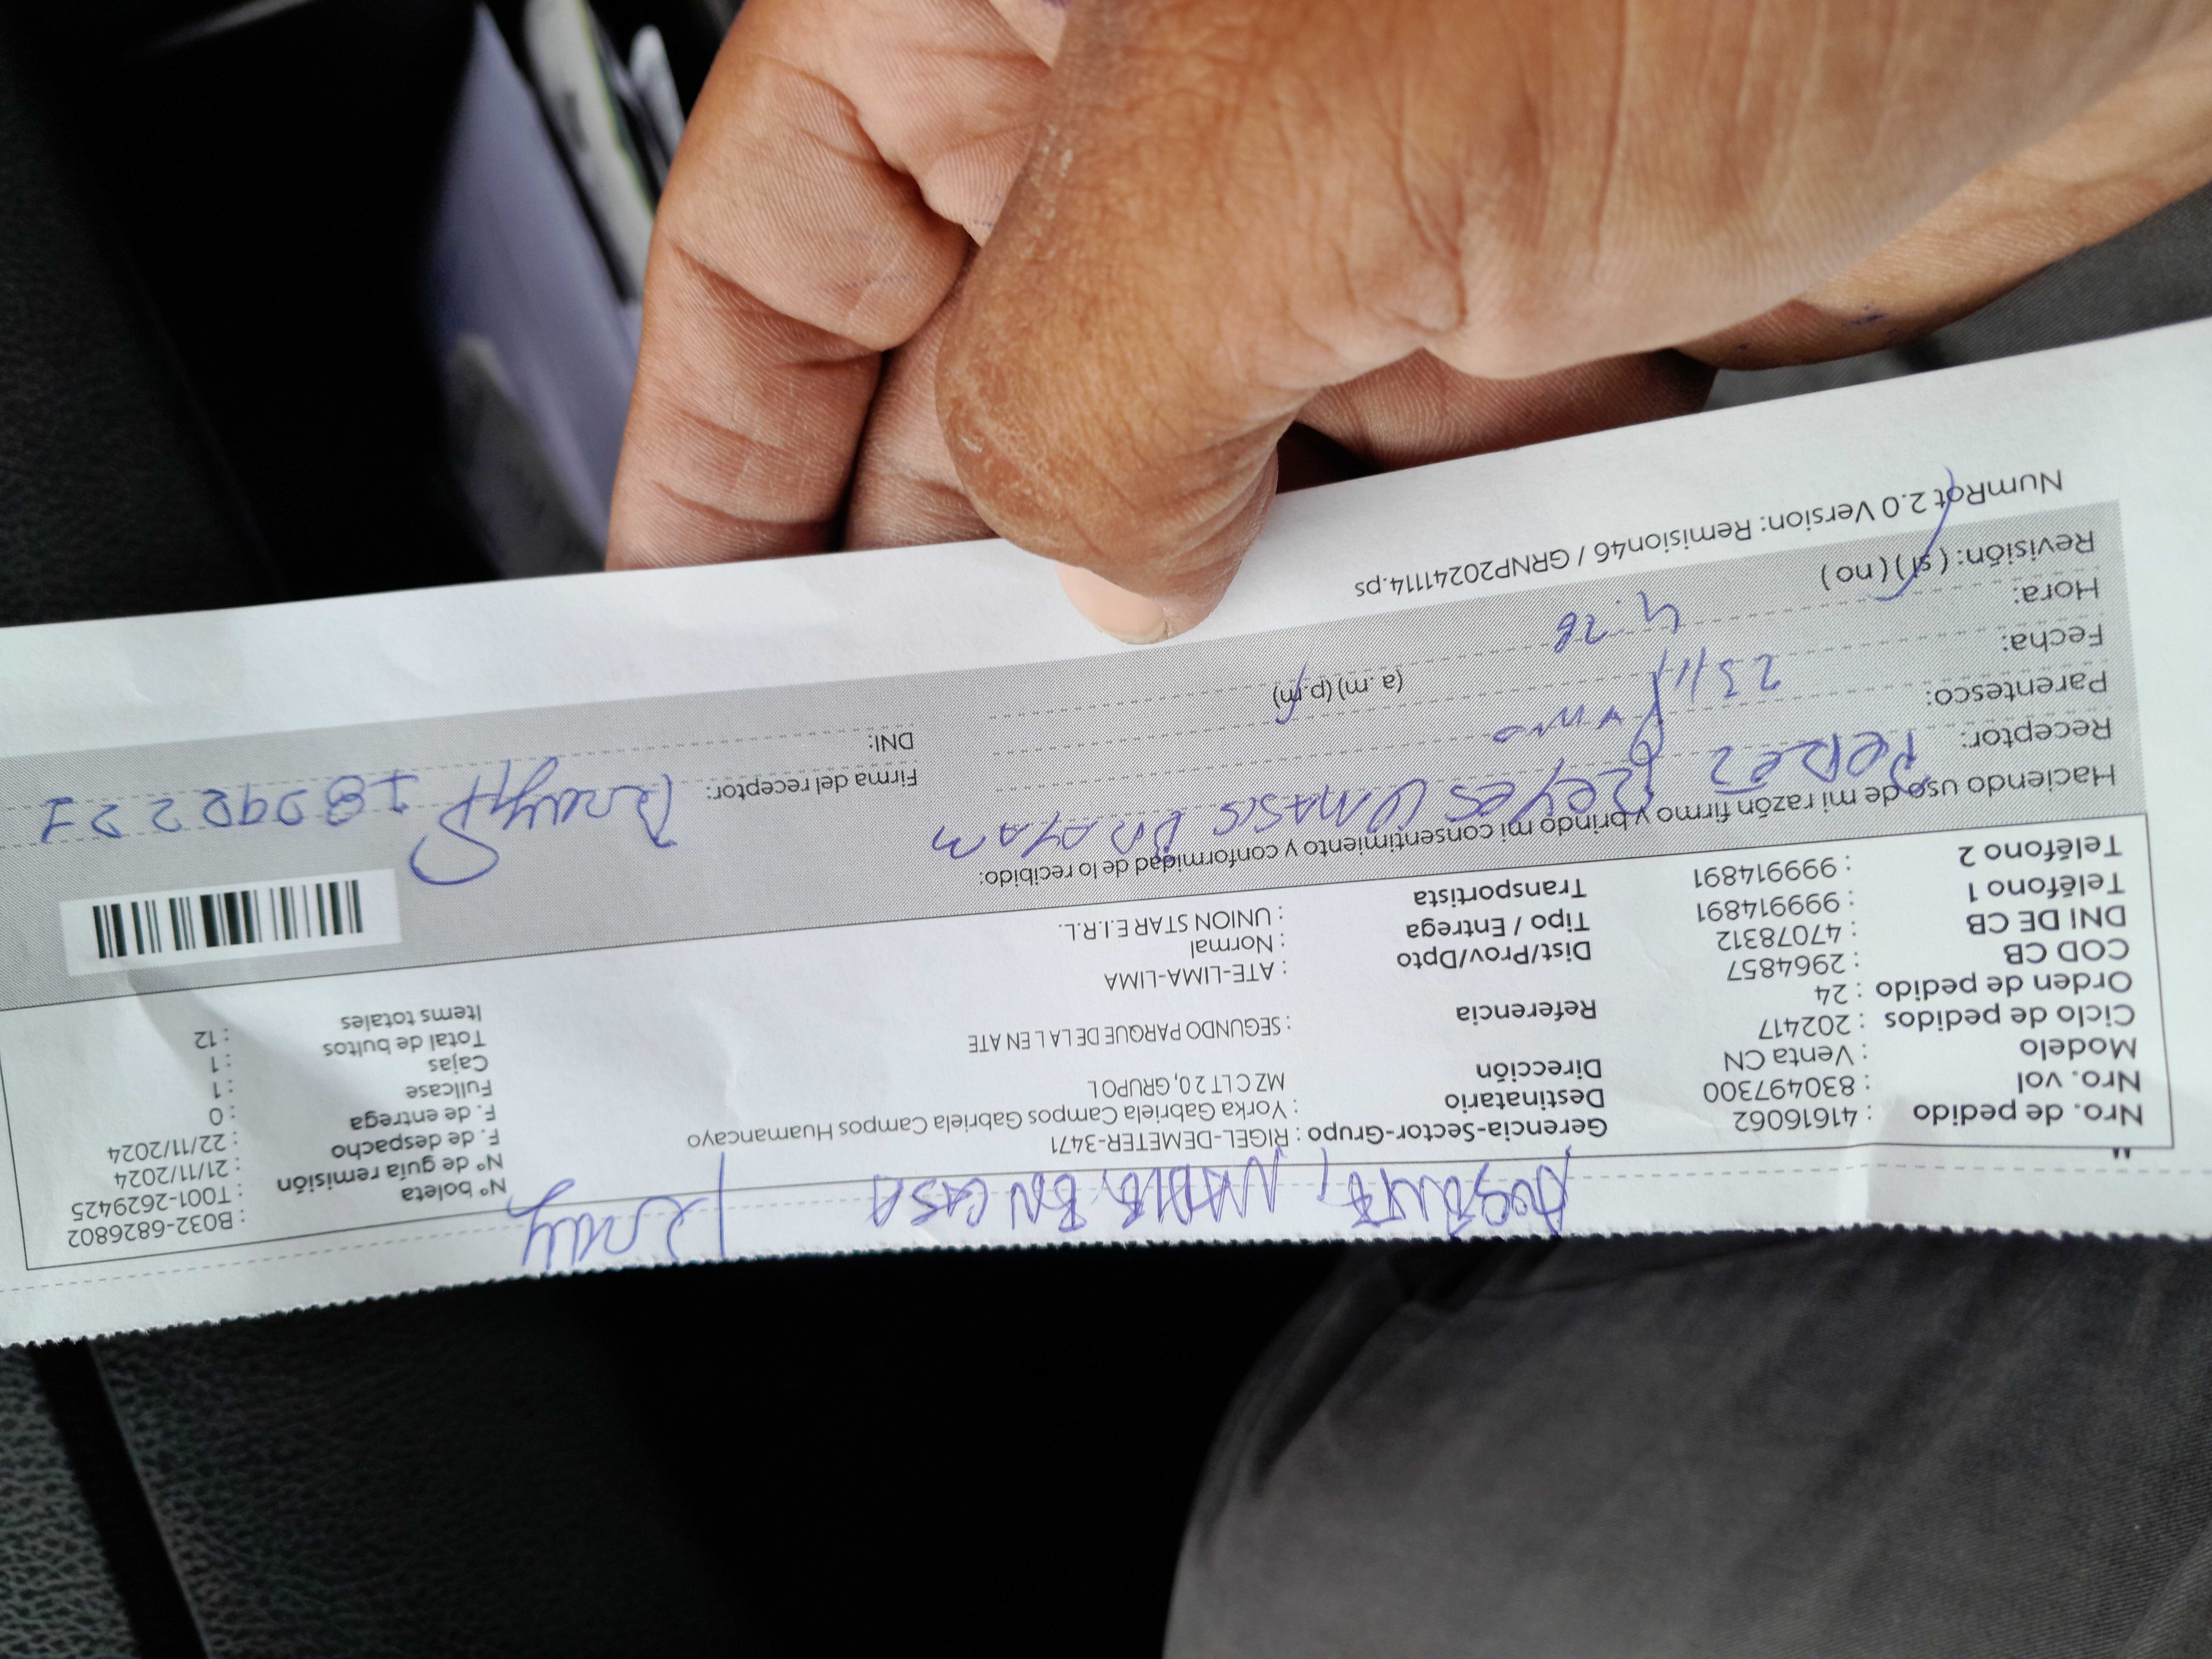 AUSENTE, NADIE EN CASA
Nro. de pedido : 41616062
Nro. vol : 830497300
Modelo : Venta CN
Ciclo de pedidos : 202417
Orden de pedido : 24
COD CB : 2964857
DNI DE CB : 47078312
Teléfono 1 : 999914891
Teléfono 2 : 999914891
Gerencia-Sector-Grupo : RIGEL-DEMETER-3471
Destinatario : Yorka Gabriela Campos Gabriela Campos Huamancayo
Dirección MZ C LT 2 0, GRUPO L
Referencia : SEGUNDO PARQUE DE LA L EN ATE
Dist/Prov/Dpto : ATE-LIMA-LIMA
Tipo / Entrega : Normal
Transportista : UNION STAR E.I.R.L.
N° boleta : B032-6826802
N° de guía remisión : T001-2629425
F. de despacho : 21/11/2024
F. de entrega : 22/11/2024
Fullcase : 0
Cajas : 1
Total de bultos : 1
Items totales : 12
Haciendo uso de mi razón firmo y brindo mi consentimiento y conformidad de lo recibido:
Receptor: PEREZ REYES
Parentesco:
Fecha: 23/11
Hora: 4:26 (a.m) (p.m)
Revisión: (si) (no)
Firma del receptor:
DNI:
NumRot 2.0 Version: Remision46 / GRNP20241114.ps